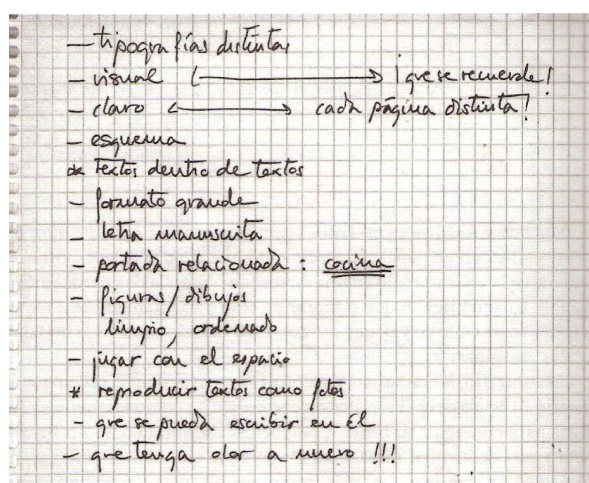 - tipografías distintas
- visual ⟷ ¡que se recuerde!
- claro ⟷ cada página distinta!
- esquema
* textos dentro de textos
- formato grande
- letra manuscrita
- portada relacionada : cocina
- figuras/dibujos
limpio, ordenado
- jugar con el espacio
* reproducir textos como fotos
- que se pueda escribir en él
- que tenga olor a nuevo !!!